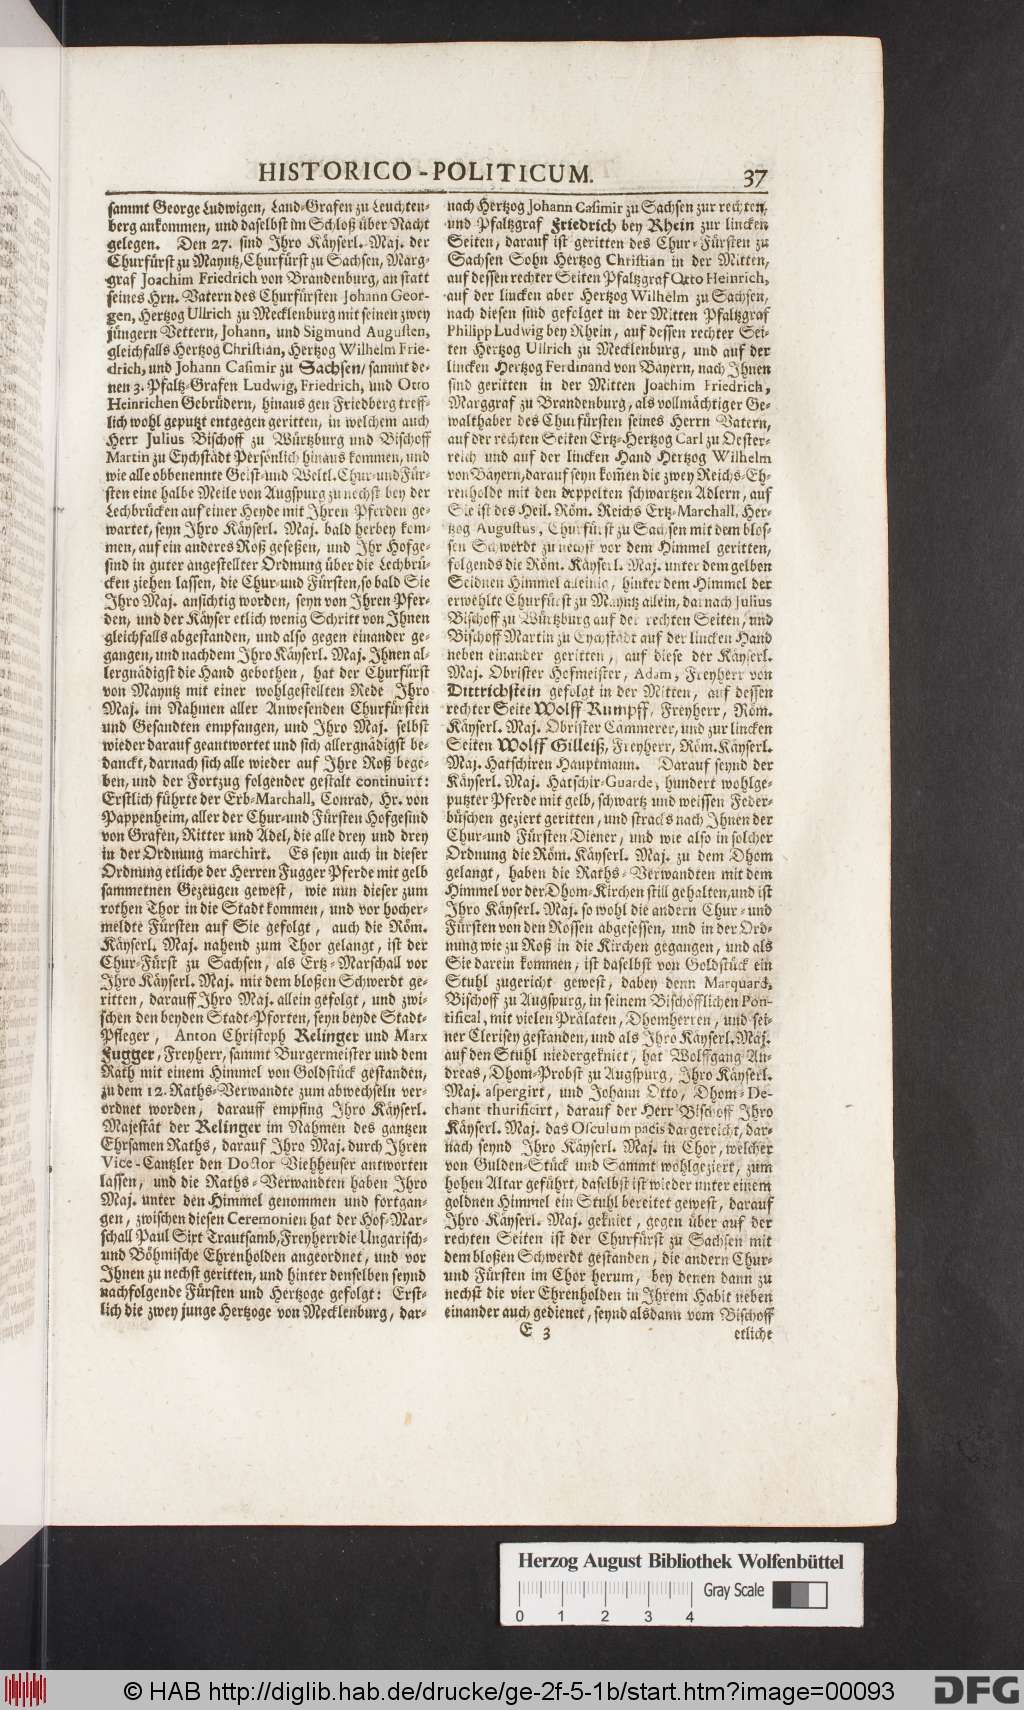 HISTORICO-POLITICUM. 37
sammt George Ludwigen, Land-Grafen zu Leuchten-
berg ankommen, und daselbst im Schloß über Nacht
gelegen. Den 27. sind Ihro Käyserl. Maj. der
Churfürst zu Mayntz, Churfürst zu Sachsen, Marg-
graf Joachim Friedrich von Brandenburg, an statt
seines Hrn. Vatern des Churfürsten Johann Geor-
gen, Hertzog Ullrich zu Mecklenburg mit seinen zwey
jüngern Vettern, Johann, und Sigmund Augusten,
gleichfalls Hertzog Christian, Hertzog Wilhelm Frie-
drich, und Johann Casimir zu Sachsen/ sammt de-
nen 3. Pfaltz-Grafen Ludwig, Friedrich, und Otto
Heinrichen Gebrüdern, hinaus gen Friedberg treff-
lich wohl geputzt entgegen geritten, in welchem auch
Herr Julius Bischoff zu Würtzburg und Bischoff
Martin zu Eychstädt Persönlich hinaus kommen, und
wie alle obbenennte Geist-und Weltl. Chur-und Für-
sten eine halbe Meile von Augspurg zu nechst bey der
Lechbrücken auf einer Heyde mit Ihren Pferden ge-
wartet, seyn Ihro Käyserl. Maj. bald herbey kom-
men, auf ein anderes Roß gesessen, und Ihr Hofge-
sind in guter angestellter Ordnung über die Lechbrü-
cken ziehen lassen, die Chur-und Fürsten, so bald Sie
Ihro Maj. ansichtig worden, seyn von Ihren Pfer-
den, und der Käyser etlich wenig Schritt von Ihnen
gleichfalls abgestanden, und also gegen einander ge-
gangen, und nachdem Ihro Käyserl. Maj. Ihnen al-
lergnädigst die Hand gebothen, hat der Churfürst
von Mayntz mit einer wohlgestellten Rede Ihro
Maj. im Nahmen aller Anwesenden Churfürsten
und Gesandten empfangen, und Ihro Maj. selbst
wieder darauf geantwortet und sich allergnädigst be-
danckt, darnach sich alle wieder auf Ihre Roß bege-
ben, und der Fortzug folgender gestalt continuirt:
Erstlich führte der Erb-Marchall, Conrad, Hr. von
Pappenheim, aller der Chur-und Fürsten Hofgesind
von Grafen, Ritter und Adel, die alle drey und drey
in der Ordnung marchirt. Es seyn auch in dieser
Ordnung etliche der Herren Fugger Pferde mit gelb
sammetnen Gezeugen gewest, wie nun dieser zum
rothen Thor in die Stadt kommen, und vor hocher-
meldte Fürsten auf Sie gefolgt, auch die Röm.
Käyserl. Maj. nahend zum Thor gelangt, ist der
Chur-Fürst zu Sachsen, als Ertz-Marschall vor
Ihro Käyserl. Maj. mit dem bloßen Schwerdt ge-
ritten, darauff Ihro Maj. allein gefolgt, und zwi-
schen den beyden Stadt-Pforten, seyn beyde Stadt-
Pfleger, Anton Christoph Relinger und Marx
Fugger, Freyherr, sammt Burgermeister und dem
Rath mit einem Himmel von Goldstück gestanden,
zu dem 12. Raths-Verwandte zum abwechseln ver-
ordnet worden, darauff empfing Ihro Käyserl.
Majestät der Relinger im Nahmen des gantzen
Ehrsamen Raths, darauf Ihro Maj. durch Ihren
Vice-Cantzler den Doctor Viehheuser antworten
lassen, und die Raths-Verwandten haben Ihro
Maj. unter den Himmel genommen und fortgan-
gen, zwischen diesen Ceremonien hat der Hof-Mar-
schall Paul Sixt Trautsamb, Freyherr die Ungarisch-
und Böhmische Ehrenholden angeordnet, und vor
Ihnen zu nechst geritten, und hinter denselben seynd
nachfolgende Fürsten und Hertzoge gefolgt: Erst-
lich die zwey junge Hertzoge von Mecklenburg, dar-
nach Hertzog Johann Casimir zu Sachsen zur rechten,
und Pfaltzgraf Friedrich bey Rhein zur lincken
Seiten, darauf ist geritten des Chur-Fürsten zu
Sachsen Sohn Hertzog Christian in der Mitten,
auf dessen rechter Seiten Pfaltzgraf Otto Heinrich,
auf der lincken aber Hertzog Wilhelm zu Sachsen,
nach diesen sind gefolget in der Mitten Pfaltzgraf
Philipp Ludwig bey Rhein, auf dessen rechter Sei-
ten Hertzog Ullrich zu Mecklenburg, und auf der
lincken Hertzog Ferdinand von Bayern, nach Ihnen
sind geritten in der Mitten Joachim Friedrich,
Marggraf zu Brandenburg, als vollmächtiger Ge-
walthaber des Churfürsten seines Herrn Vatern,
auf der rechten Seiten Ertz-Hertzog Carl zu Oester-
reich und auf der lincken Hand Hertzog Wilhelm
von Bäyern, darauf seyn kom̃en die zwey Reichs-Eh-
renholde mit den doppelten schwartzen Adlern, auf
Sie ist des Heil. Röm. Reichs Ertz-Marchall, Her-
tzog Augustus, Churfürst zu Sachsen mit dem blos-
sen Schwerdt zu nechst vor dem Himmel geritten,
folgends die Röm. Käyserl. Maj. unter dem gelben
Seidnen Himmel alleinig, hinter dem Himmel der
erwehlte Churfürst zu Mayntz allein, darnach Julius
Bischoff zu Würtzburg auf der rechten Seiten, und
Bischoff Martin zu Eychstädt auf der lincken Hand
neben einander geritten, auf diese der Käyserl.
Maj. Obrister Hofmeister, Adam, Freyherr von
Dittrichstein gefolgt in der Mitten, auf dessen
rechter Seite Wolff Rumpff, Freyherr, Röm.
Käyserl. Maj. Obrister Cammerer, und zur lincken
Seiten Wolff Gilleiß, Freyherr, Röm. Käyserl.
Maj. Hatschiren Hauptmann. Darauf seynd der
Käyserl. Maj. Hatschir-Guarde, hundert wohlge-
putzter Pferde mit gelb, schwartz und weissen Feder-
büschen geziert geritten, und stracks nach Ihnen der
Chur-und Fürsten Diener, und wie also in solcher
Ordnung die Röm. Käyserl. Maj. zu dem Dhom
gelangt, haben die Raths-Verwandten mit dem
Himmel vor der Dhom-Kirchen still gehalten, und ist
Ihro Käyserl. Maj. so wohl die andern Chur-und
Fürsten von den Rossen abgesessen, und in der Ord-
nung wie zu Roß in die Kirchen gegangen, und als
Sie darein kommen, ist daselbst von Goldstück ein
Stuhl zugericht gewest, dabey denn Marquard,
Bischoff zu Augspurg, in seinem Bischöfflichen Pon-
tifical, mit vielen Prälaten, Dhomherren, und sei-
ner Clerisey gestanden, und als Ihro Käyserl. Maj.
auf den Stuhl niedergekniet, hat Wolffgang An-
dreas, Dhom-Probst zu Augspurg, Ihro Käyserl.
Maj. aspergirt, und Johann Otto, Dhom-De-
chant thurificirt, darauf der Herr Bischoff Ihro
Käyserl. Maj. das Osculum pacis dargereicht, dar-
nach seynd Ihro Käyserl. Maj. in Chor, welcher
von Gulden-Stück und Sammt wohlgeziert, zum
hohen Altar geführt, daselbst ist wieder unter einem
goldnen Himmel ein Stuhl bereitet gewest, darauf
Ihro Käyserl. Maj. gekniet, gegen über auf der
rechten Seiten ist der Churfürst zu Sachsen mit
dem bloßen Schwerdt gestanden, die andern Chur-
und Fürsten im Chor herum, bey denen dann zu
nechst die vier Ehrenholden in Ihrem Habit neben
einander auch gedienet, seynd alsdann vom Bischoff
E 3 etliche
Herzog August Bibliothek Wolfenbüttel
Gray Scale
0 1 2 3 4
© HAB http://diglib.hab.de/drucke/ge-2f-5-1b/start.htm?image=00093
DFG